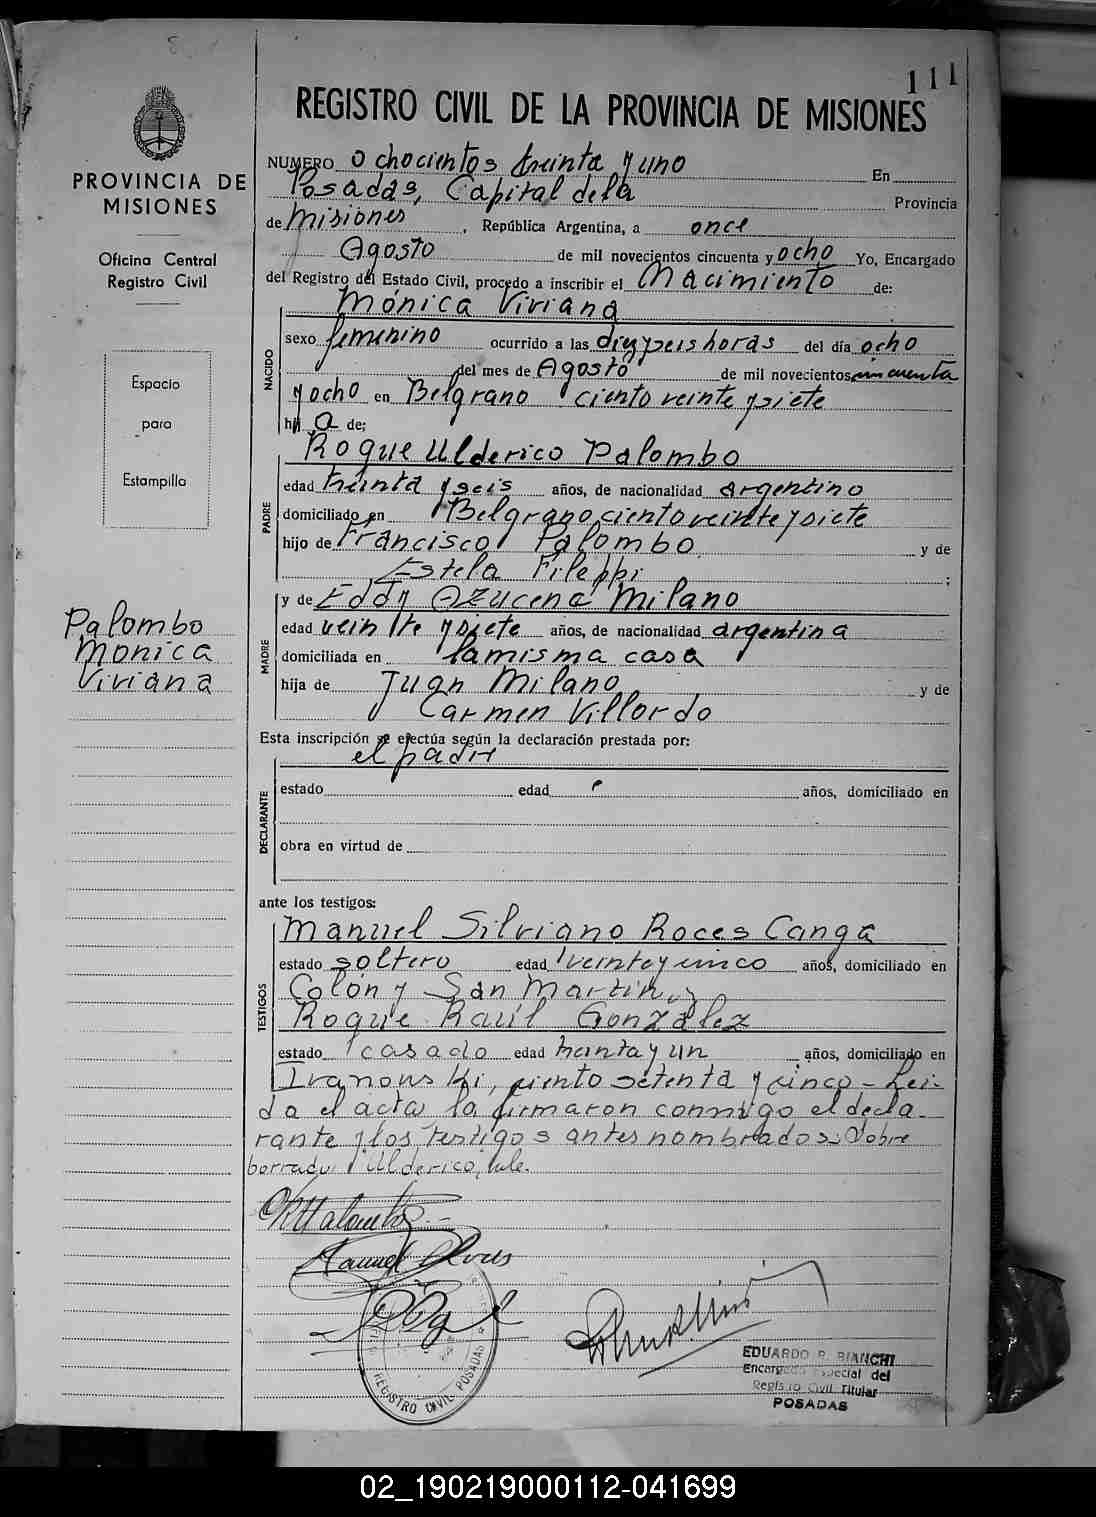 111
REGISTRO CIVIL DE LA PROVINCIA DE MISIONES
PROVINCIA DE
MISIONES
Oficina Central
Registro Civil
Espacio
para
Estampilla
Palombo
Monica
Viviana
NUMERO Ochocientos treinta y uno En
Posadas, Capital de la Provincia
de Misiones, República Argentina, a once
Agosto de mil novecientos cincuenta y ocho Yo, Encargado
del Registro del Estado Civil, procedo a inscribir el Nacimiento de:
Mónica Viviana
NACIDO
sexo femenino ocurrido a las diez y seis horas del día ocho
del mes de Agosto de mil novecientos cincuenta
y ocho en Belgrano ciento veinte y siete
hij a de:
Roque Ulderico Palombo
PADRE
edad treinta y seis años, de nacionalidad argentino
domiciliado en Belgrano ciento veinte y siete
hijo de Francisco Palombo y de
Estela Fileppi ;
y de Eddy Azucena Milano
MADRE
edad vein te y siete años, de nacionalidad argentina
domiciliada en la misma casa
hija de Juan Milano y de
Carmen Villordo
Esta inscripción se efectúa según la declaración prestada por:
el padre
DECLARANTE
estado edad años, domiciliado en
obra en virtud de
ante los testigos:
Manuel Silviano Roces Canga
TESTIGOS
estado soltero edad veinte y cinco años, domiciliado en
Colón y San Martin, y
Roque Raúl González
estado casado edad treinta y un años, domiciliado en
Ivanouski, ciento setenta y cinco - Lei-
da el acta la firmaron conmigo el decla-
rante y los testigos antes nombrados: Sobre
borrado: Ulderico, vale.
Manuel Roces
REGISTRO CIVIL POSADAS
EDUARDO R. BIANCHI
Encargado Especial del
Registro Civil Titular
POSADAS
02_190219000112-041699